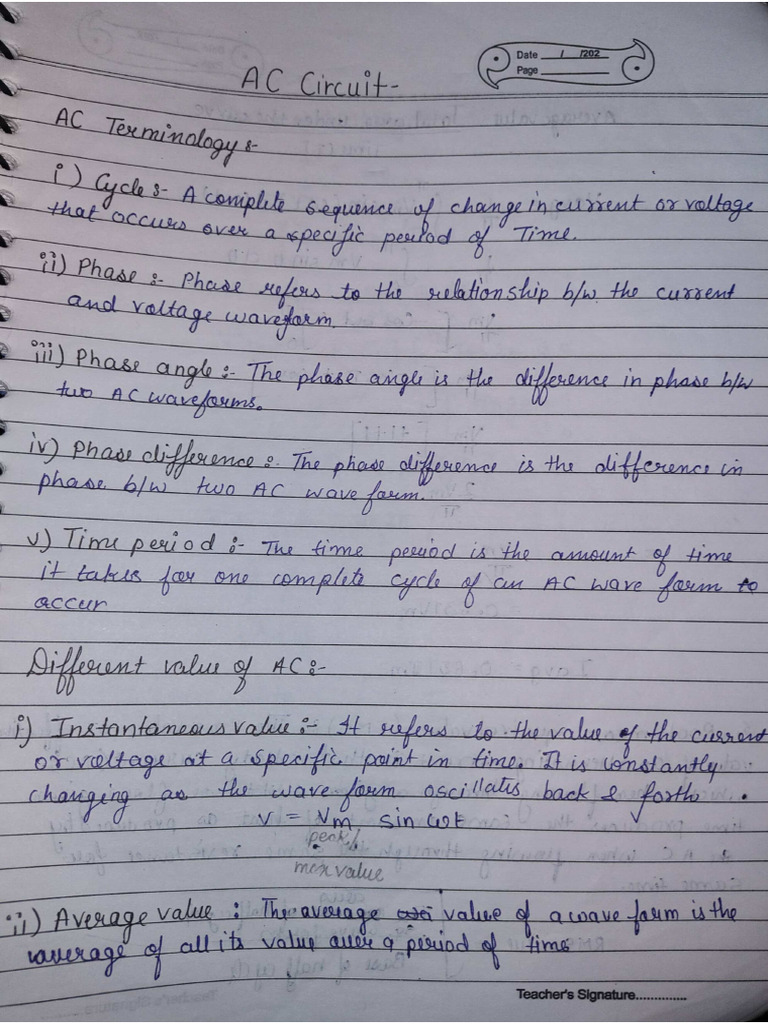 Date / /202
Page
AC Circuit-
AC Terminology :-
i) Cycle :- A complete sequence of change in current or voltage
that occurs over a specific period of Time.
ii) Phase :- Phase refers to the relationship b/w the current
and voltage waveform.
iii) Phase angle :- The phase angle is the difference in phase b/w
two AC waveforms.
iv) Phase difference :- The phase difference is the difference in
phase b/w two AC wave form.
v) Time period :- The time period is the amount of time
it takes for one complete cycle of an AC wave form to
accur
Different value of AC :-
i) Instantaneous value :- It refers to the value of the current
or voltage at a specific point in time. It is constantly
changing as the wave form oscillates back & forth .
v = Vm sin ωt
peak/
max value
ii) Average value : The average value of a wave form is the
average of all its value over a period of time
Teacher's Signature..............